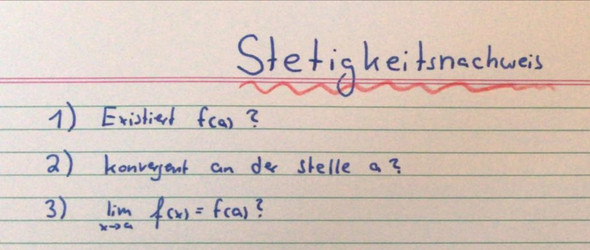 Stetigkeitsnachweis
1) Existiert f(a) ?
2) konvergent an der stelle a ?
3) lim x→a f(x) = f(a) ?